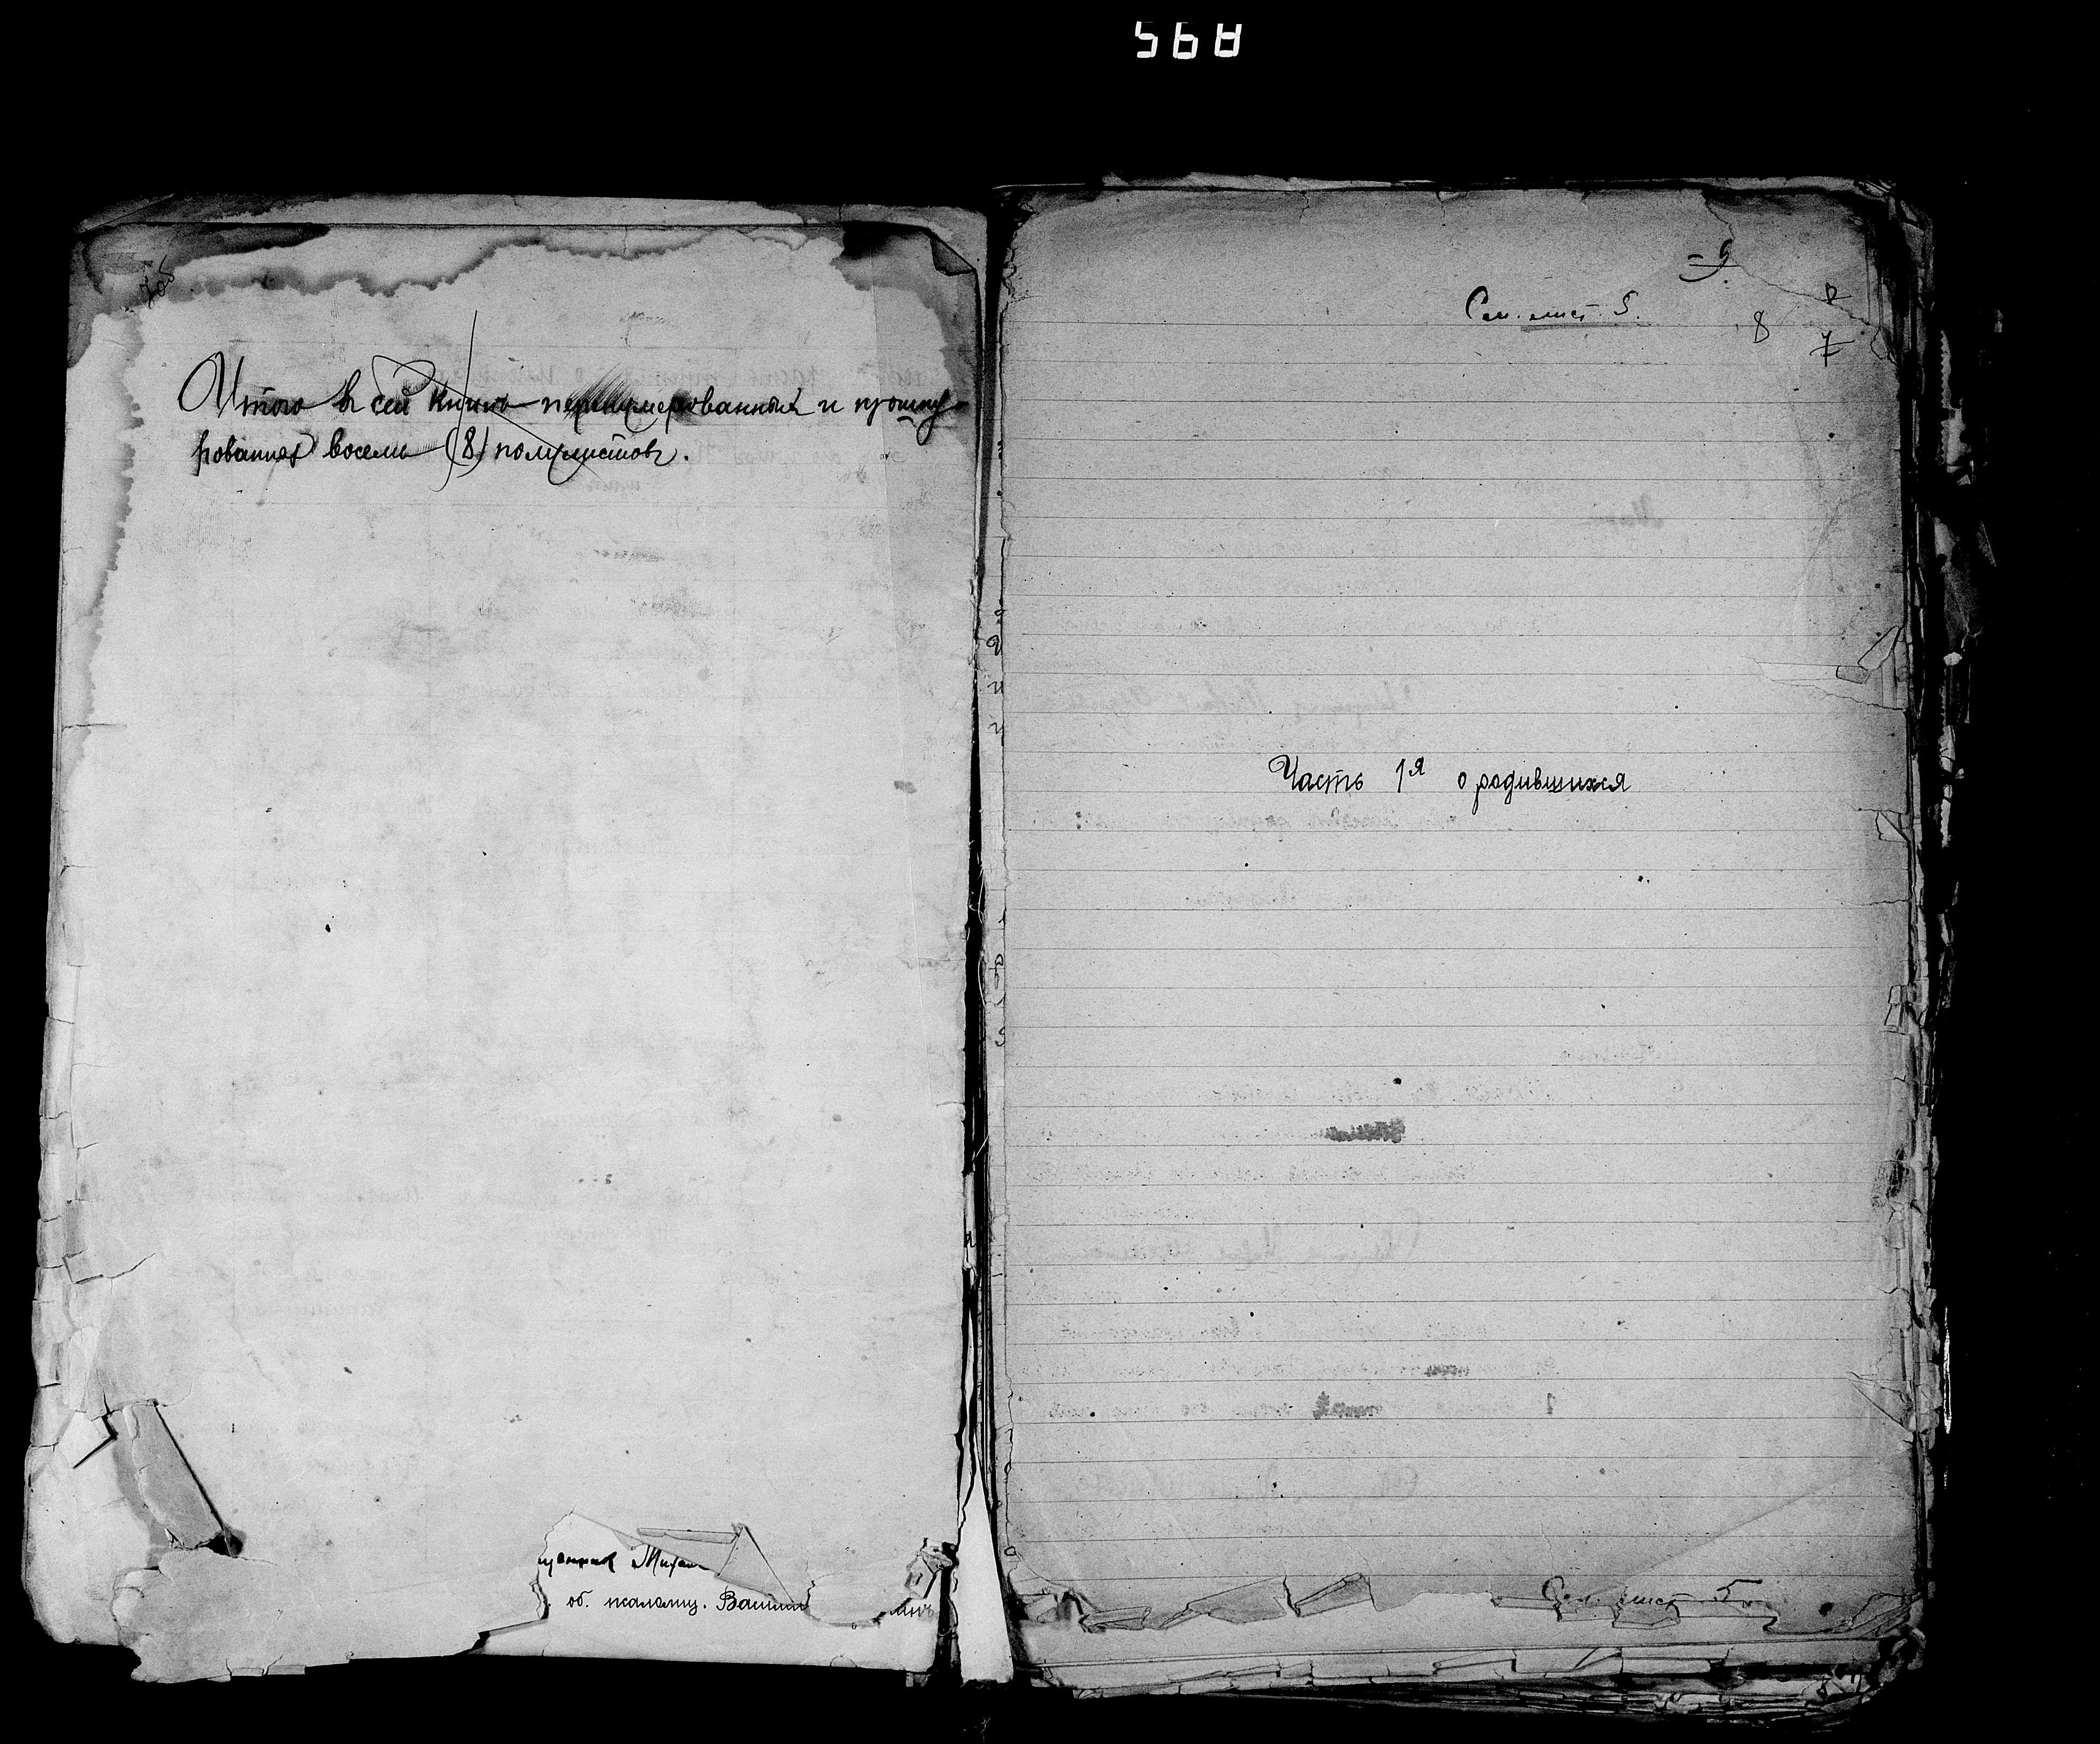 568
Итого въ сей книгѣ перенумерованныхъ и прошну-
рованныхъ восемь (8) полулистовъ.
об. псаломщ.
5
Сем. лист 5.
8
7
Часть 1я о родившихся
Сем. лист 5